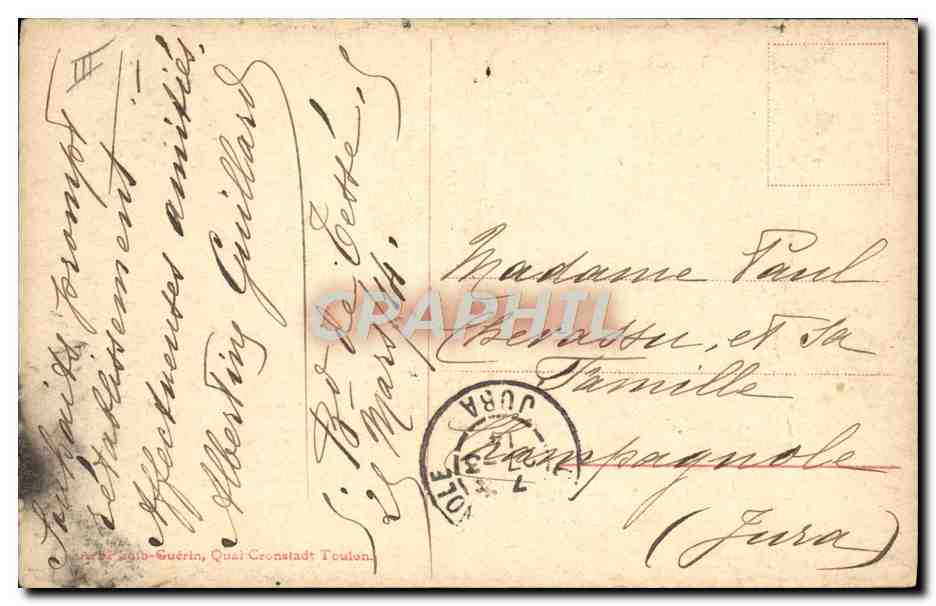 III
Souhaite prompt
rétablissement —
Affectueuses amitiés,
Albertin Guillard
Bd de Tessé,
25 Mars 14.
Madame Paul
Chevassu, et sa
Famille
Champagnole
(Jura)
NOLE
JURA
7
27-3
14
Guérin, Quai Cronstadt Toulon.
CPAPHIL